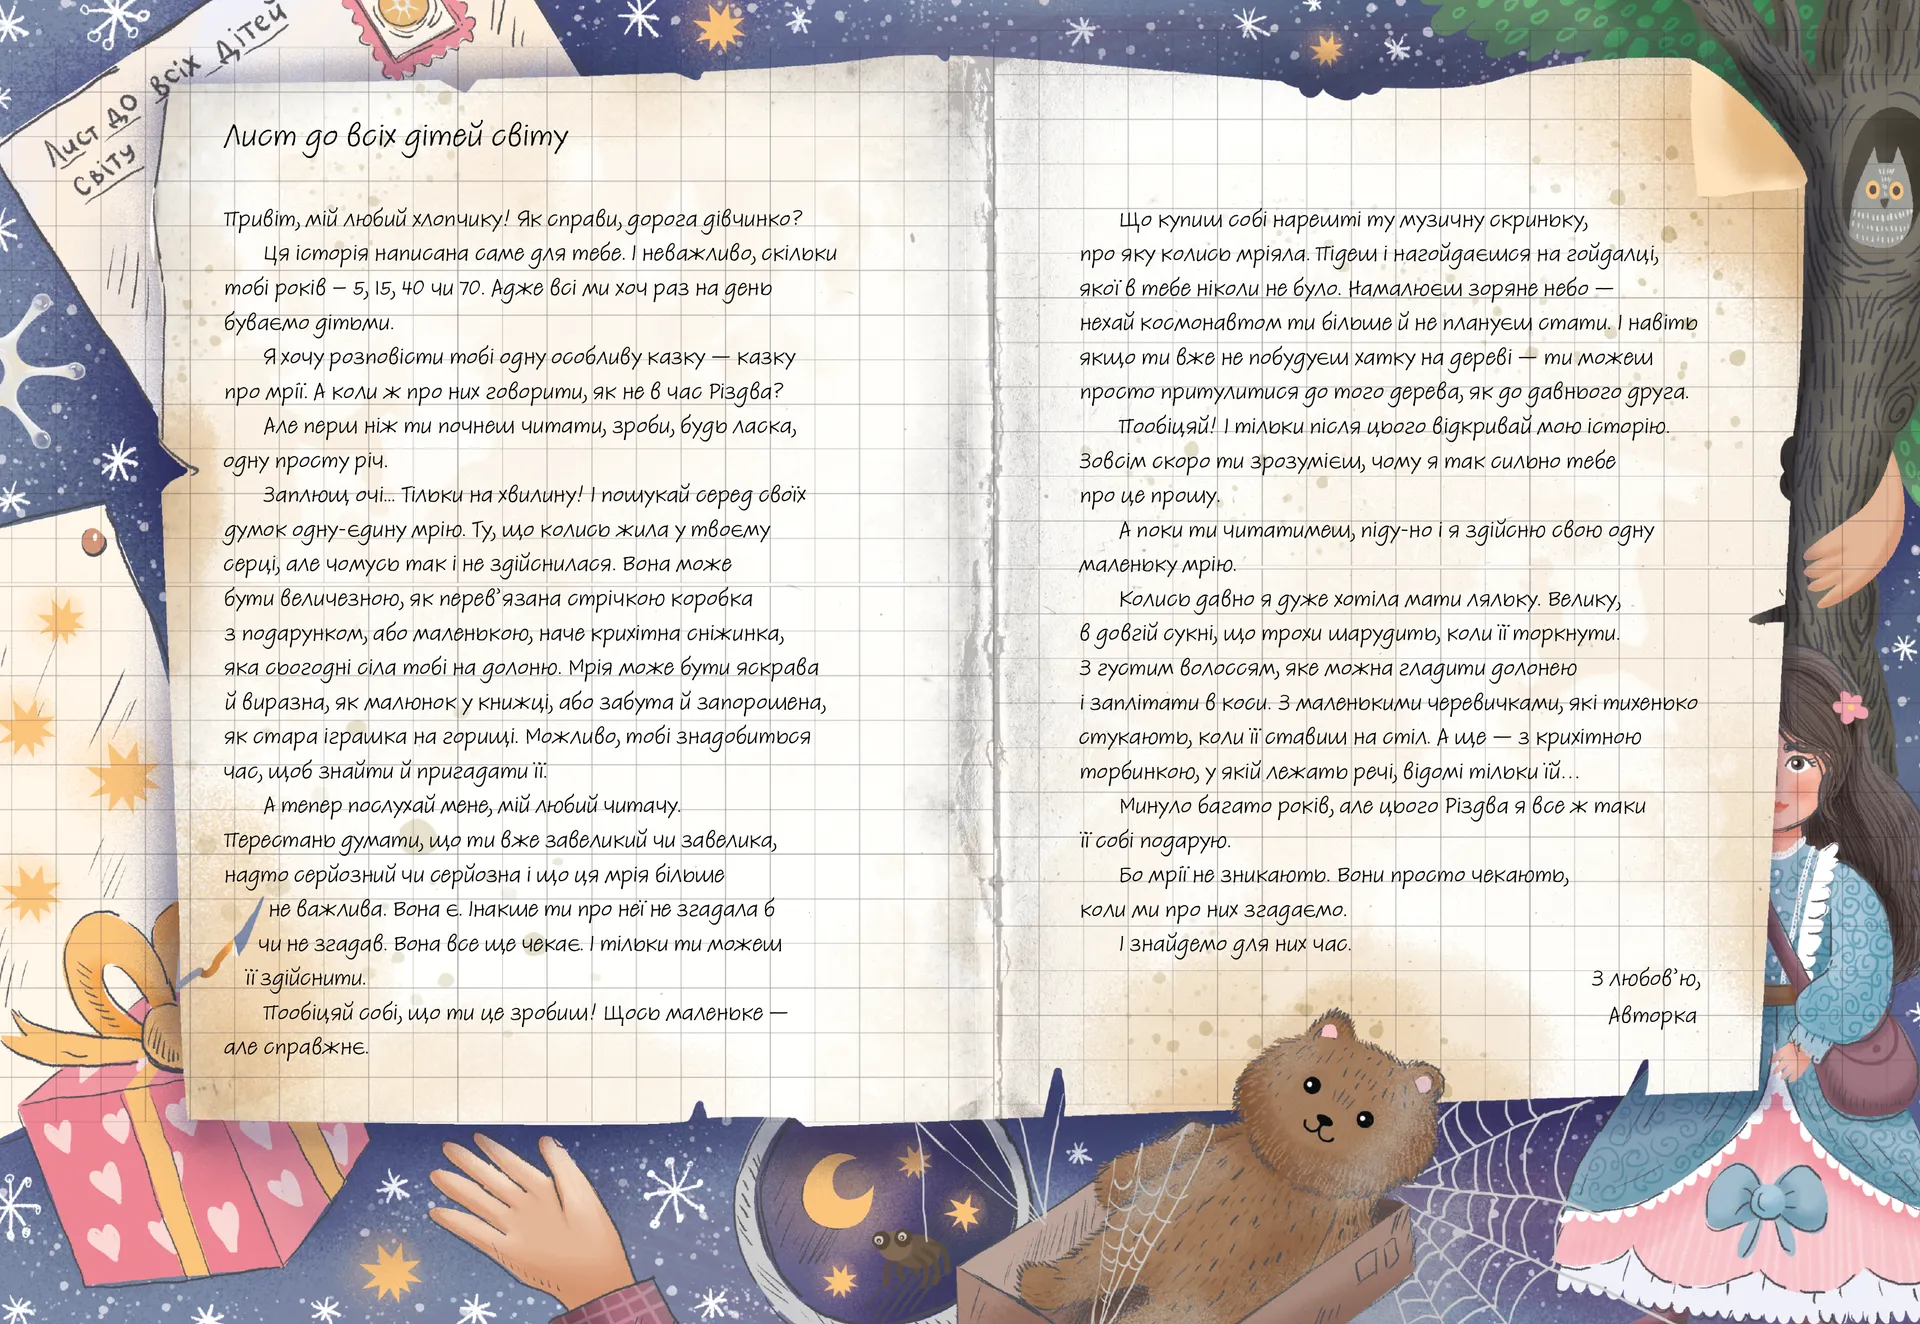 Лист до всіх дітей
світу
Лист до всіх дітей світу
Привіт, мій любий хлопчику! Як справи, дорога дівчинко?
Ця історія написана саме для тебе. І неважливо, скільки
тобі років – 5, 15, 40 чи 70. Адже всі ми хоч раз на день
буваємо дітьми.
Я хочу розповісти тобі одну особливу казку — казку
про мрії. А коли ж про них говорити, як не в час Різдва?
Але перш ніж ти почнеш читати, зроби, будь ласка,
одну просту річ.
Заплющ очі... Тільки на хвилину! І пошукай серед своїх
думок одну-єдину мрію. Ту, що колись жила у твоєму
серці, але чомусь так і не здійснилася. Вона може
бути величезною, як перев’язана стрічкою коробка
з подарунком, або маленькою, наче крихітна сніжинка,
яка сьогодні сіла тобі на долоню. Мрія може бути яскрава
й виразна, як малюнок у книжці, або забута й запорошена,
як стара іграшка на горищі. Можливо, тобі знадобиться
час, щоб знайти й пригадати її.
А тепер послухай мене, мій любий читачу.
Перестань думати, що ти вже завеликий чи завелика,
надто серйозний чи серйозна і що ця мрія більше
не важлива. Вона є. Інакше ти про неї не згадала б
чи не згадав. Вона все ще чекає. І тільки ти можеш
її здійснити.
Пообіцяй собі, що ти це зробиш! Щось маленьке —
але справжнє.
Що купиш собі нарешті ту музичну скриньку,
про яку колись мріяла. Підеш і нагойдаєшся на гойдалці,
якої в тебе ніколи не було. Намалюєш зоряне небо —
нехай космонавтом ти більше й не плануєш стати. І навіть
якщо ти вже не побудуєш хатку на дереві — ти можеш
просто притулитися до того дерева, як до давнього друга.
Пообіцяй! І тільки після цього відкривай мою історію.
Зовсім скоро ти зрозумієш, чому я так сильно тебе
про це прошу.
А поки ти читатимеш, піду-но і я здійсню свою одну
маленьку мрію.
Колись давно я дуже хотіла мати ляльку. Велику,
в довгій сукні, що трохи шарудить, коли її торкнути.
З густим волоссям, яке можна гладити долонею
і заплітати в коси. З маленькими черевичками, які тихенько
стукають, коли її ставиш на стіл. А ще — з крихітною
торбинкою, у якій лежать речі, відомі тільки їй...
Минуло багато років, але цього Різдва я все ж таки
її собі подарую.
Бо мрії не зникають. Вони просто чекають,
коли ми про них згадаємо.
І знайдемо для них час.
З любов’ю,
Авторка